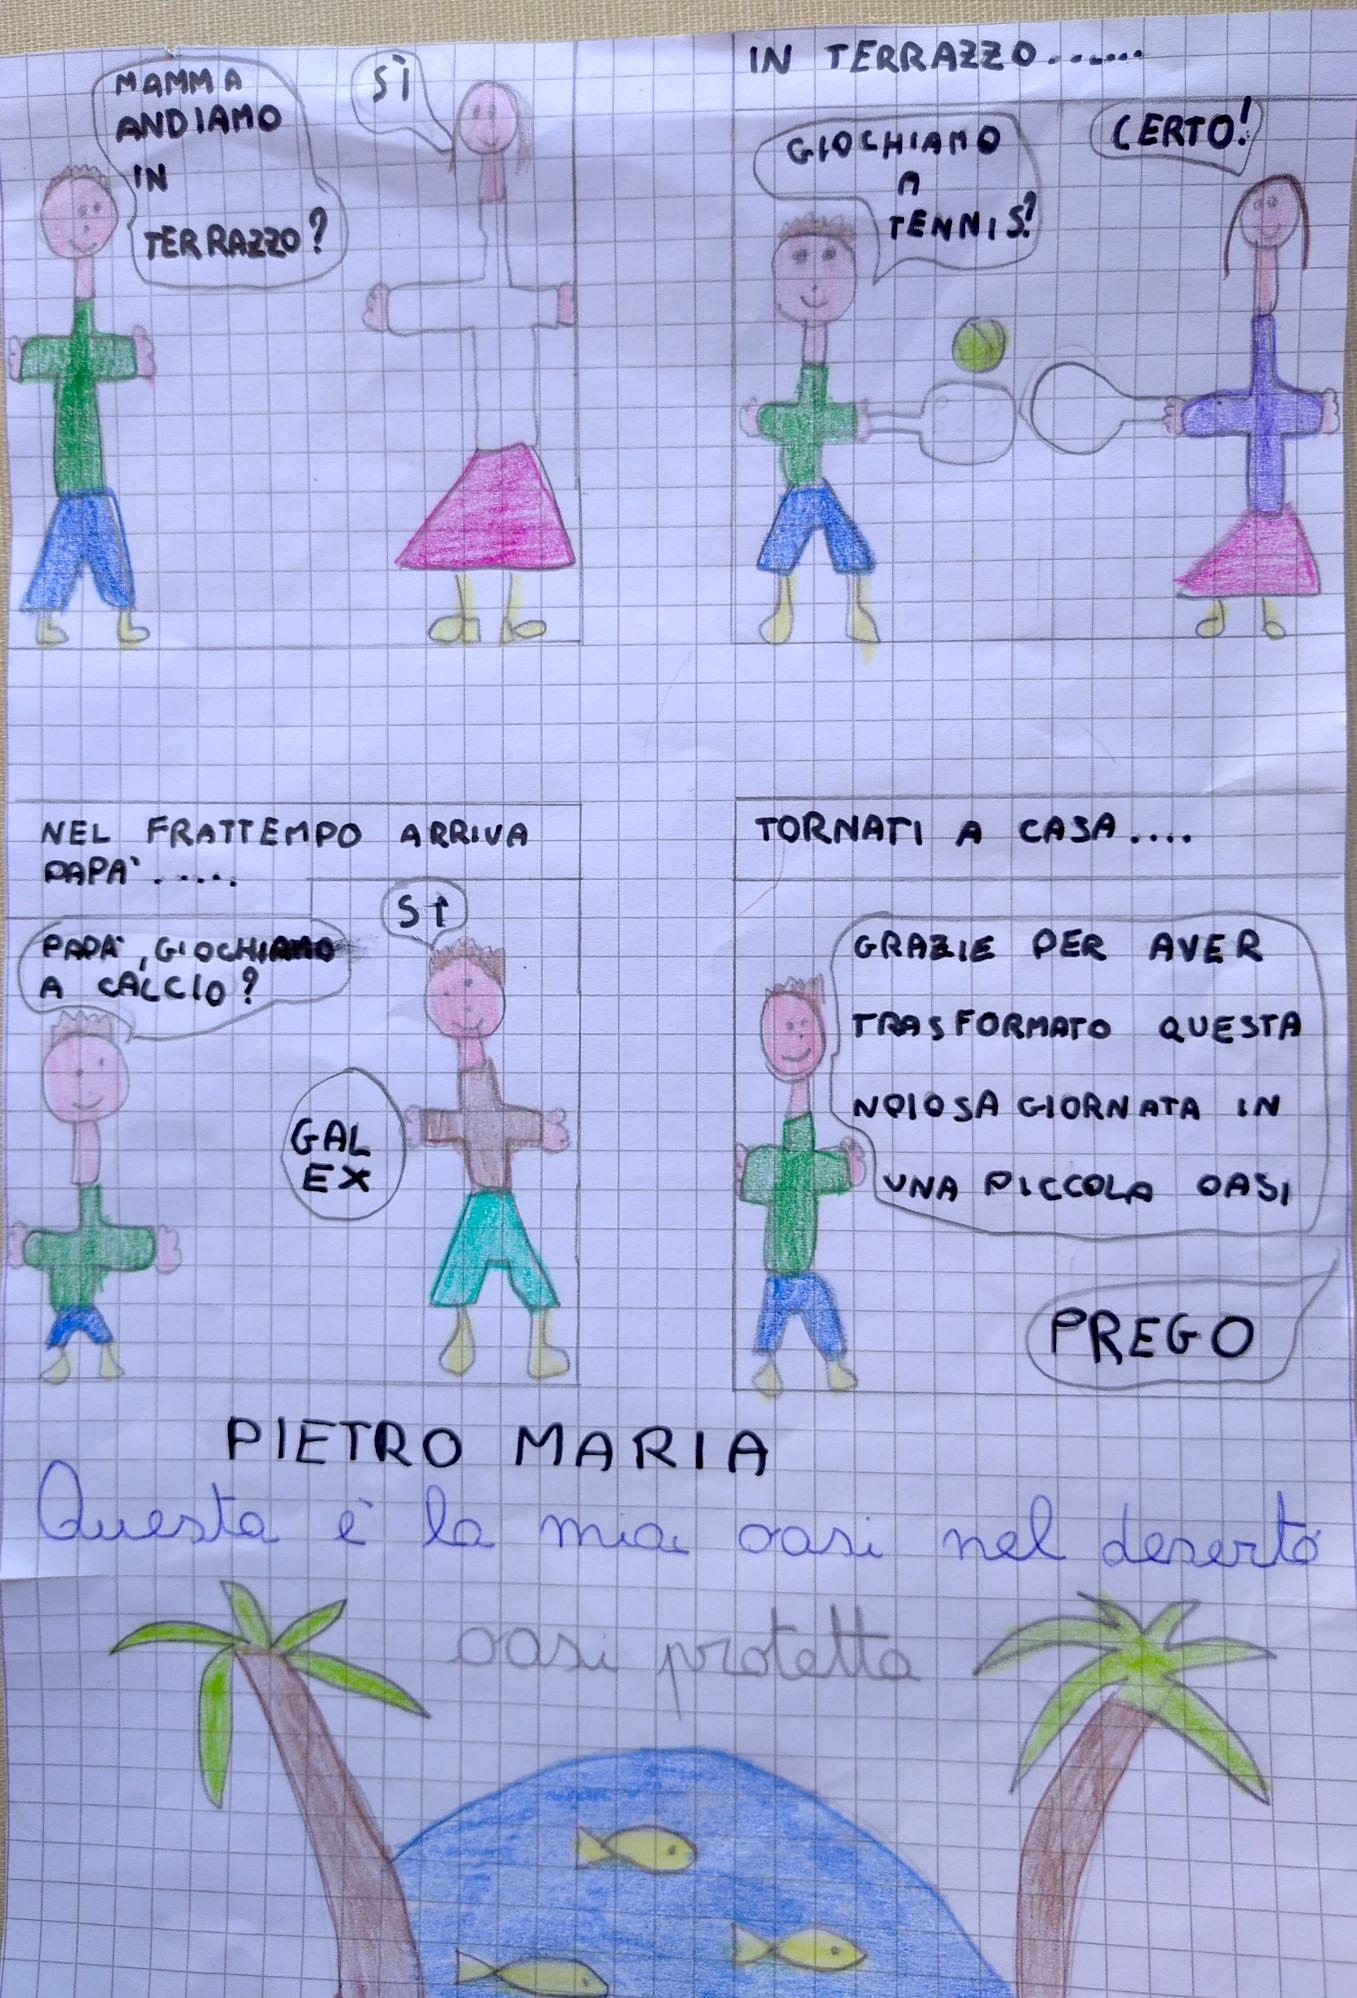 MAMMA
ANDIAMO
IN
TERRAZZO?
SÌ
IN TERRAZZO.......
GIOCHIAMO
A
TENNIS?
CERTO!
NEL FRATTEMPO ARRIVA
PAPA'.....
PAPA', GIOCHIAMO
A CALCIO?
SÌ
GAL
EX
TORNATI A CASA....
GRAZIE PER AVER
TRASFORMATO QUESTA
NOIOSA GIORNATA IN
UNA PICCOLA OASI
PREGO
PIETRO MARIA
Questa è la mia oasi nel deserto
oasi protetta